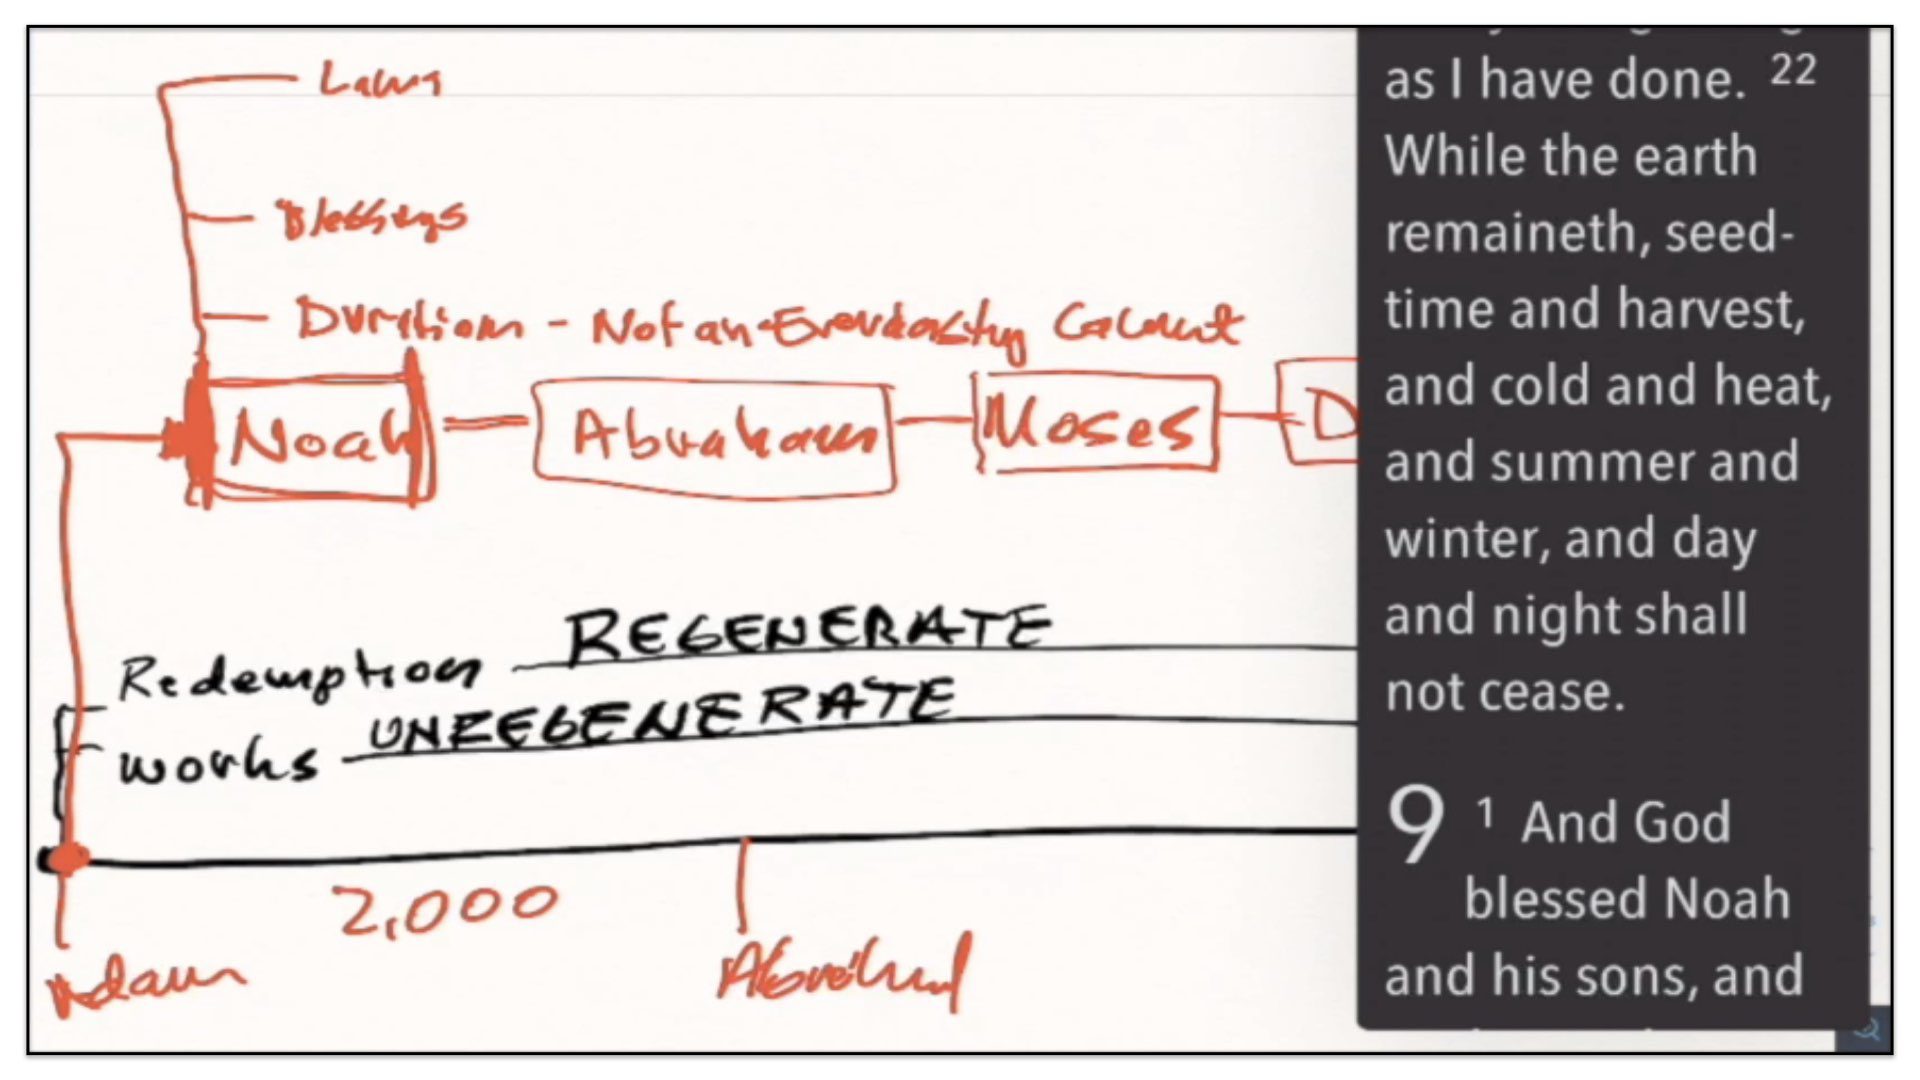 Laws
Blessings
Duration - Not an Everlasting Covenant
Noah
Abraham
Moses
D
Redemption REGENERATE
works UNREGENERATE
2,000
Adam
as I have done. 22
While the earth
remaineth, seed-
time and harvest,
and cold and heat,
and summer and
winter, and day
and night shall
not cease.
9 1 And God
blessed Noah
and his sons, and